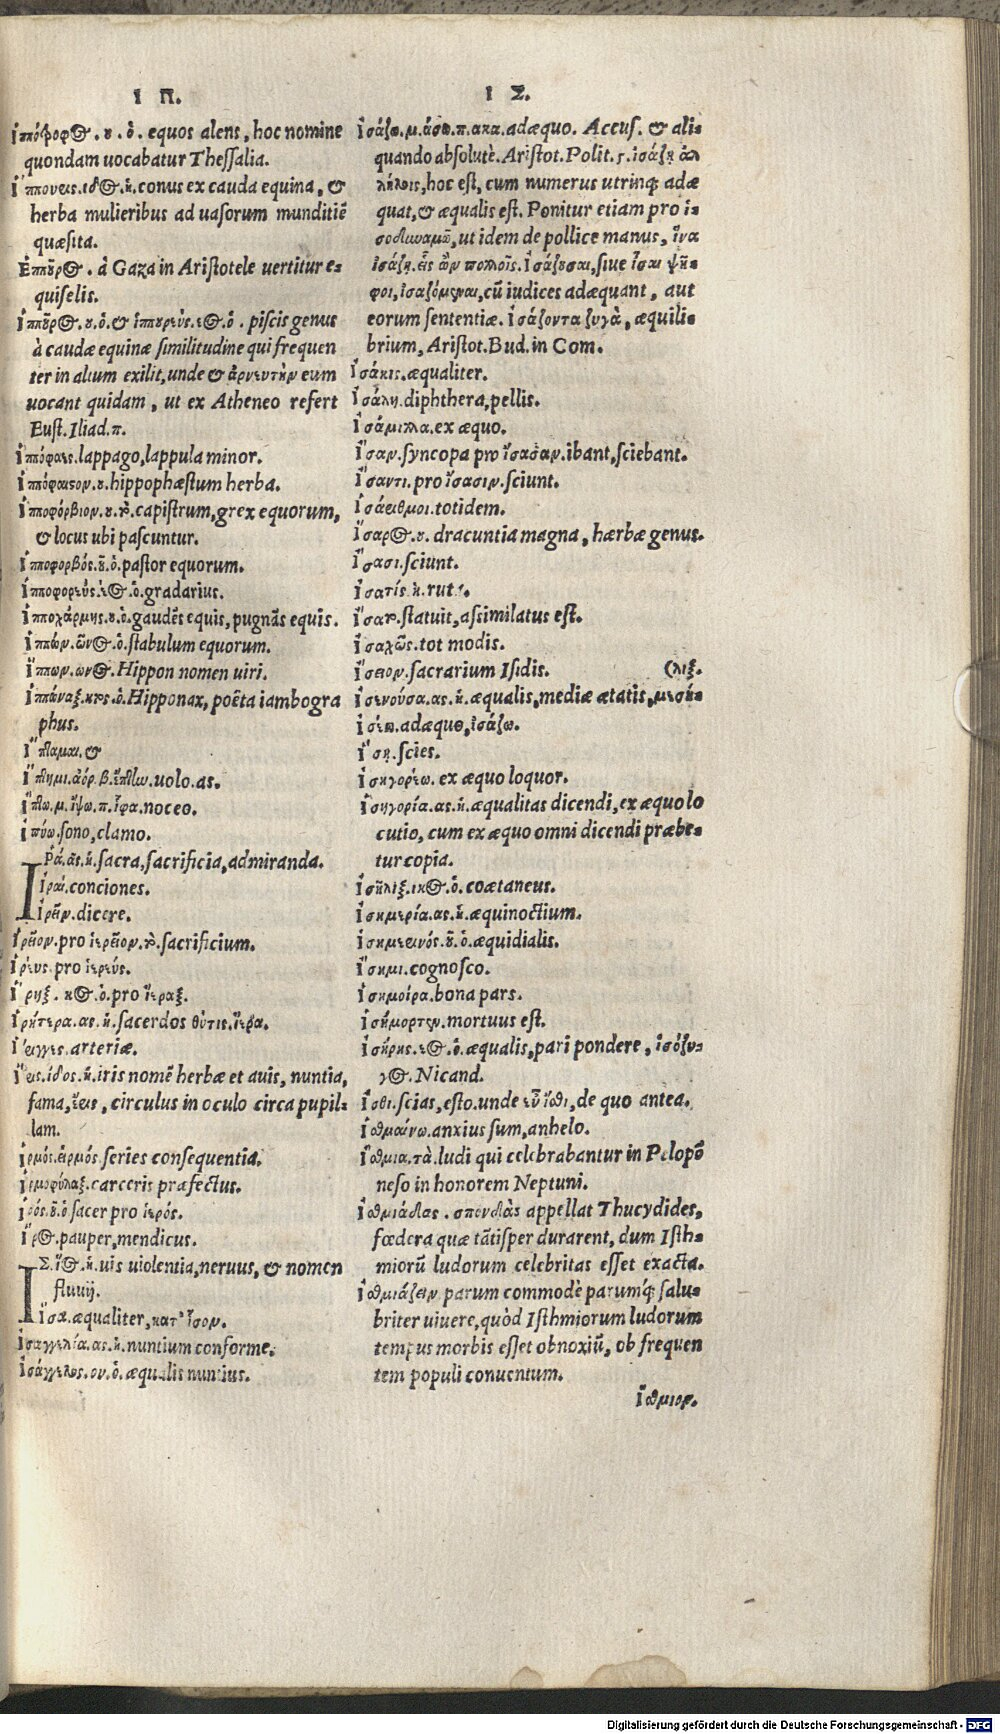 Ι Π.
ἱπποτρόφος. ου. ὁ. equos alens, hoc nomine
quondam uocabatur Thessalia.
ἵππουρις. ιδος. ἡ. conus ex cauda equina, &
herba mulieribus ad uasorum munditiē
quæsita.
ἵππουρος. à Gaza in Aristotele uertitur e-
quiselis.
ἵππουρος. ου. ὁ. & ἱππουρεύς. έος. ὁ. piscis genus
à caudæ equinæ similitudine qui frequen
ter in altum exilit, unde & ἀρνευτὴν eum
uocant quidam, ut ex Atheneo refert
Eust. Iliad. π.
ἱππόφαες. lappago, lappula minor.
ἱππόφαιστον. ου. hippophæstum herba.
ἱπποφόρβιον. ου. τὸ. capistrum, grex equorum,
& locus ubi pascuntur.
ἱπποφορβός. οῦ. ὁ. pastor equorum.
ἱπποφορεύς. έος. ὁ. gradarius.
ἱπποχάρμης. ου. ὁ. gaudēs equis, pugnās equis.
ἱππών. ῶνος. ὁ. stabulum equorum.
ἵππων. ωνος. Hippon nomen uiri.
ἱππώναξ. κτος. ὁ. Hipponax, poëta iambogra
phus.
ἵπταμαι. &
ἵπτημι. ἀόρ. β. ἔπτην. uolo. as.
ἵπτω. μ. ἵψω. π. ἷφα. noceo.
ἰπύω. sono, clamo.
ΙΡά. ᾶς. ἡ. sacra, sacrificia, admiranda.
ἰραί. conciones.
ἰρεῖν. dicere.
ἱρεῖον. pro ἱερεῖον. τὸ. sacrificium.
ἱρεύς. pro ἱερεύς.
ἵρηξ. κος. ὁ. pro ἵεραξ.
ἱρήτερα. ας. ἡ. sacerdos θύτις. ἵερα.
ἴριγγες. arteriæ.
ἶρις. ίδος. ἡ. iris nomē herbæ et auis, nuntia,
fama, ἔρις, circulus in oculo circa pupil-
lam.
ἱρμός. εἱρμός. series consequentia.
ἱρμοφύλαξ. carceris præfectus.
ἱρός. οῦ. ὁ sacer pro ἱερός.
ἶρος. pauper, mendicus.
ΙΣ. ἰὸς. ἡ. uis uiolentia, neruus, & nomen
fluuij.
ἴσα. æqualiter, κατ' ἴσον.
ἰσαγγελία. ας. ἡ. nuntium conforme.
ἰσάγγελος. ου. ὁ. æqualis nuntius.
Ι Σ.
ἰσάζω. μ. άσω. π. ακα. adæquo. Accus. & ali-
quando absolutè. Aristot. Polit. ς. ἰσάζῃ ἀλ
λήλοις, hoc est, cum numerus utrinq; adæ
quat, & æqualis est. Ponitur etiam pro i-
σοδυναμῶ, ut idem de pollice manus, ἵνα
ἰσάζῃ. εἷς ὢν πολλοῖς. ἰσάζουσαι, siue ἴσαι ψῆ-
φοι, ἰσαζόμεναι, cū iudices adæquant, aut
eorum sententiæ. ἰσάζοντα ζυγὰ, æquili-
brium, Aristot. Bud. in Com.
ἰσάκις. æqualiter.
ἰσάλη. diphthera, pellis.
ἰσάμιλλα. ex æquo.
ἴσαν. syncopa pro ἴσασαν. ibant, sciebant.
ἴσαντι. pro ἴσασιν. sciunt.
ἰσάριθμοι. totidem.
ἴσαρος. ου. dracuntia magna, hærbæ genus.
ἴσασι. sciunt.
ἰσατίς. ἡ.
ἴσατο. statuit, assimilatus est.
ἰσαχῶς. tot modis.
ἴσειον. sacrarium Isidis. (λιξ.
ἰσενοῦσα. ας. ἡ. æqualis, mediæ ætatis, μεσή-
ἰσέω. adæquo, ἰσάζω.
ἴσῃ. scies.
ἰσηγορέω. ex æquo loquor.
ἰσηγορία. ας. ἡ. æqualitas dicendi, ex æquo lo
cutio, cum ex æquo omni dicendi præbe-
tur copia.
ἰσῆλιξ. ικος. ὁ. coætaneus.
ἰσημερία. ας. ἡ. æquinoctium.
ἰσημερινός. οῦ. ὁ. æquidialis.
ἴσημι. cognosco.
ἰσημοίρα. bona pars.
ἰσήμορτεν. mortuus est.
ἰσήρης. εος. ὁ. æqualis, pari pondere, ἰσόζυ-
γος. Nicand.
ἴσθι. scias, esto. unde εὖ ἴσθι, de quo antea.
ἰσθμαίνω. anxius sum, anhelo.
ἴσθμια. τὰ. ludi qui celebrabantur in Pelopō
neso in honorem Neptuni.
ἰσθμιάδας. σπονδὰς appellat Thucydides,
fœdera quæ tātisper durarent, dum Isth-
miorū ludorum celebritas esset exacta.
ἰσθμιάζειν parum commodè parumq́; salu-
briter uiuere, quòd Isthmiorum ludorum
tempus morbis esset obnoxiū, ob frequen
tem populi conuentum.
ἴσθμιον.
Digitalisierung gefördert durch die Deutsche Forschungsgemeinschaft - DFG